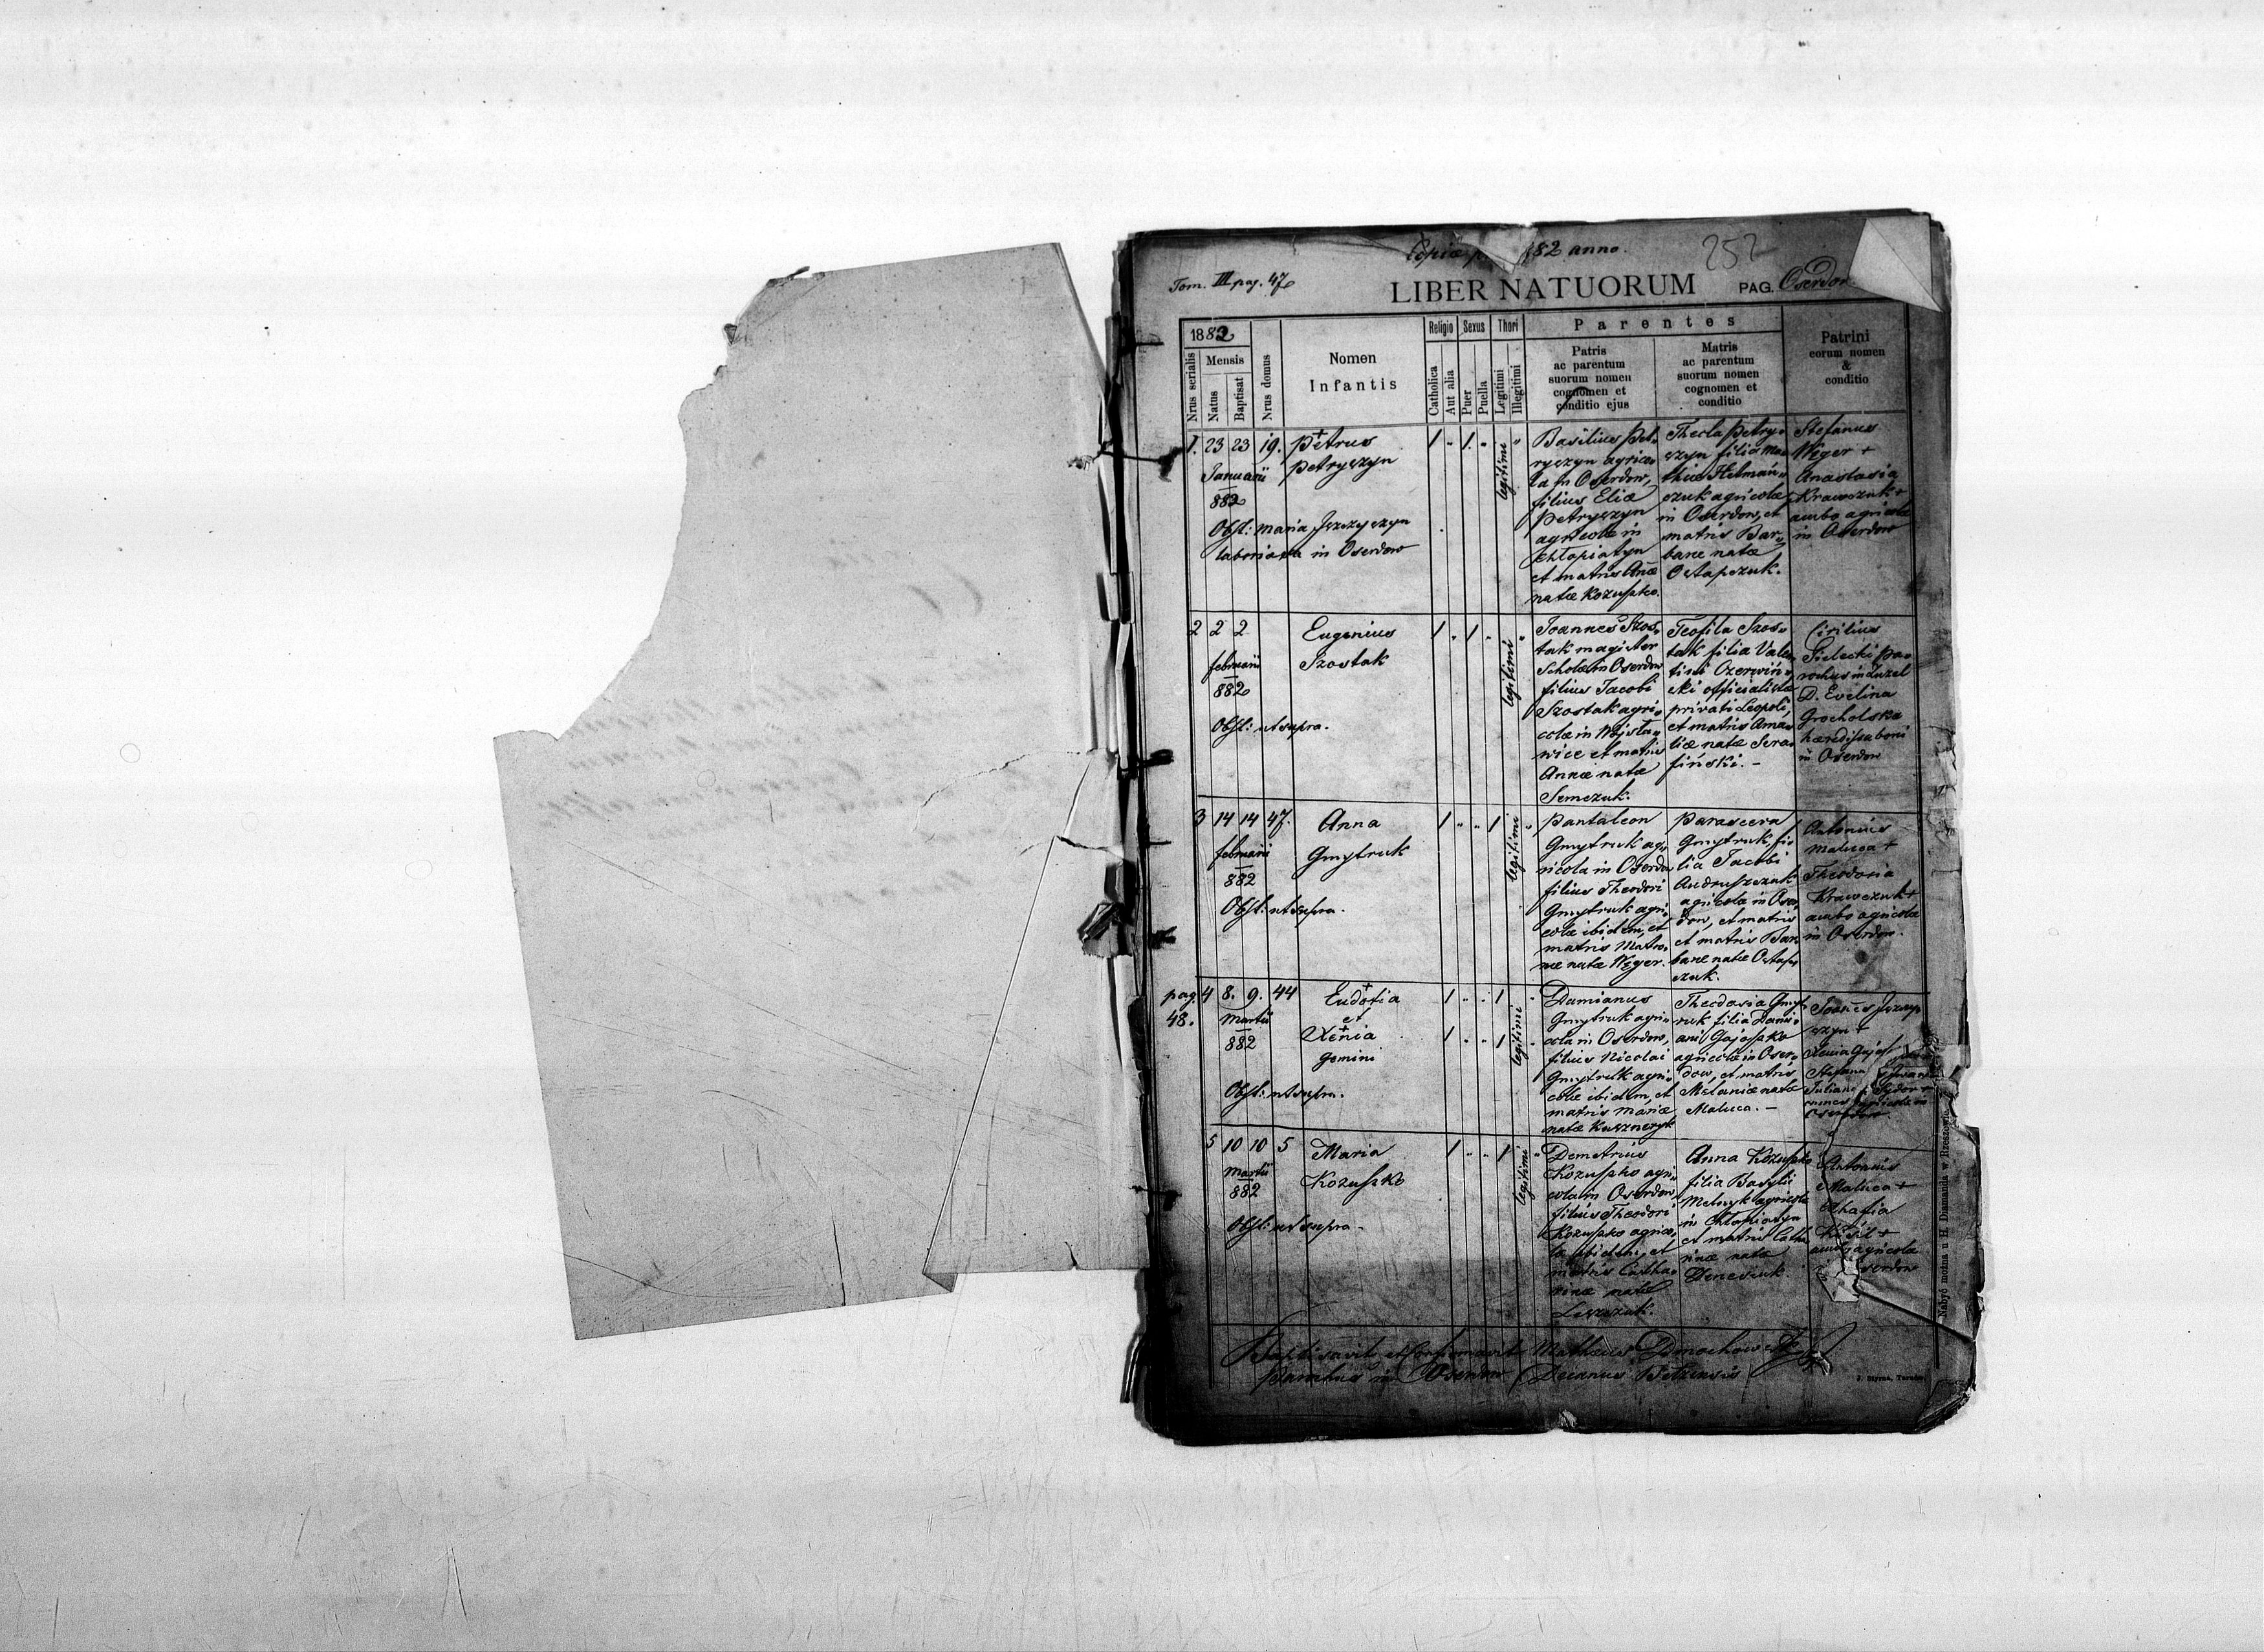 Copiæ 882 anno.
252
Tom. III pag. 47
LIBER NATUORUM PAG. Oserdow
1882
Nrus serialis
Mensis
Natus
Baptisat
Nrus domus
Nomen
Infantis
Religio
Catholica
Aut alia
Sexus
Puer
Puella
Thori
Legitimi
Illegitimi
Parentes
Patris
ac parentum
suorum nomen
cognomen et
conditio ejus
Matris
ac parentum
suorum nomen
cognomen et
conditio
Patrini
eorum nomen
&
conditio
1. 23 23 19. Petrus
Petryszyn
Januarii
882
Obst: Maria Jszczyszyn
laboriosa in Oserdow
1 " 1. " legitimi "
Basilius Pet-
ryszyn agrico-
la in Oserdow,
filius Eliæ
Petryszyn
agricolæ in
Chłopiatyn
et matris Anæ
natæ Kozuszko.
Thecla Petry-
szyn filia Ma-
thiæ Hetmań-
szuk agricolæ
in Oserdow, et
matris Bar-
baræ natæ
Ostapczuk.
Stefanus
Węger +
Anastasia
Krawczuk +
ambo agricolæ
in Oserdow
2 2 2 Eugenius
Szostak
februarii
882
Obst: ut supra.
1 " 1 " legitimi "
Joannes Szos-
tak magister
Scholæ in Oserdow
filius Jacobi
Szostak agri-
colæ in Wojsła-
wice et matris
Annæ natæ
Semczuk.
Teofila Szos-
tak filia Valen-
tini Czerwiń-
ski officialistæ
privati Leopoli,
et matris Ama-
liæ natæ Sera-
fiński. -
Cirilius
Sielecki pa-
rochus in Żużel
D. Evelina
Grocholska
hæredissa boni
in Oserdow
3 14 14 47. Anna
Gmytruk
februarii
882
Obst: ut supra.
1 " " 1 legitimi "
Pantaleon
Gmytruk ag-
ricola in Oserdow
filius Theodori
Gmytruk agri-
colæ ibidem, et
matris Matro-
næ natæ Węger.
Parasceva
Gmytruk, fi-
lia Jacobi
Andruszczuk
agricolæ in Oser-
dow, et matris
et matris Bar-
baræ natæ Ostap-
czuk.
Antonius
Maluca +
Theodoria
Krawczuk +
ambo agricolæ
in Oserdow.
pag. 48.
4 8. 9. 44 Eudofia
et
Xenia
gemini
Martii
882
Obst: ut supra.
1 " " 1 "
1 " " 1 " legitimi
Damianus
Gmytruk agri-
cola in Oserdow,
filius Nicolai
Gmytruk agri-
colæ ibidem, et
matris Mariæ
natæ Kuszneryk
Theodosia Gmyt-
ruk filia Dami-
ani Gajoszko
agricolæ in Oser-
dow, et matris
Melaniæ natæ
Maluca. -
Joanes Jszczy-
szyn +
Xenia
Stefana
Juliana
Oserdow
5 10 10 5 Maria
Kozuszko
Martii
882
Obst: ut supra -
1 " " 1 legitimi "
Demetrius
Kozuszko agri-
cola in Oserdow,
filius Theodori
Kozuszko agrico-
la ibidem, et
matris Catha-
rinæ natæ
Leszczuk.
Anna Kozuszko
filia Basylii
Melnyk agricolæ
in Chłopiatyn
et matris Catha-
rinæ natæ
Antonius
Maluca +
Ahafia
ambo agricolæ
in Oserdow
Baptisavit et Confirmavit Mathæus Dmochowski
Parochus in Oserdow Decanus Bełzensis
Nabyć można u H. Diamanda w Rzeszowie
J. Styrna, Tarnów